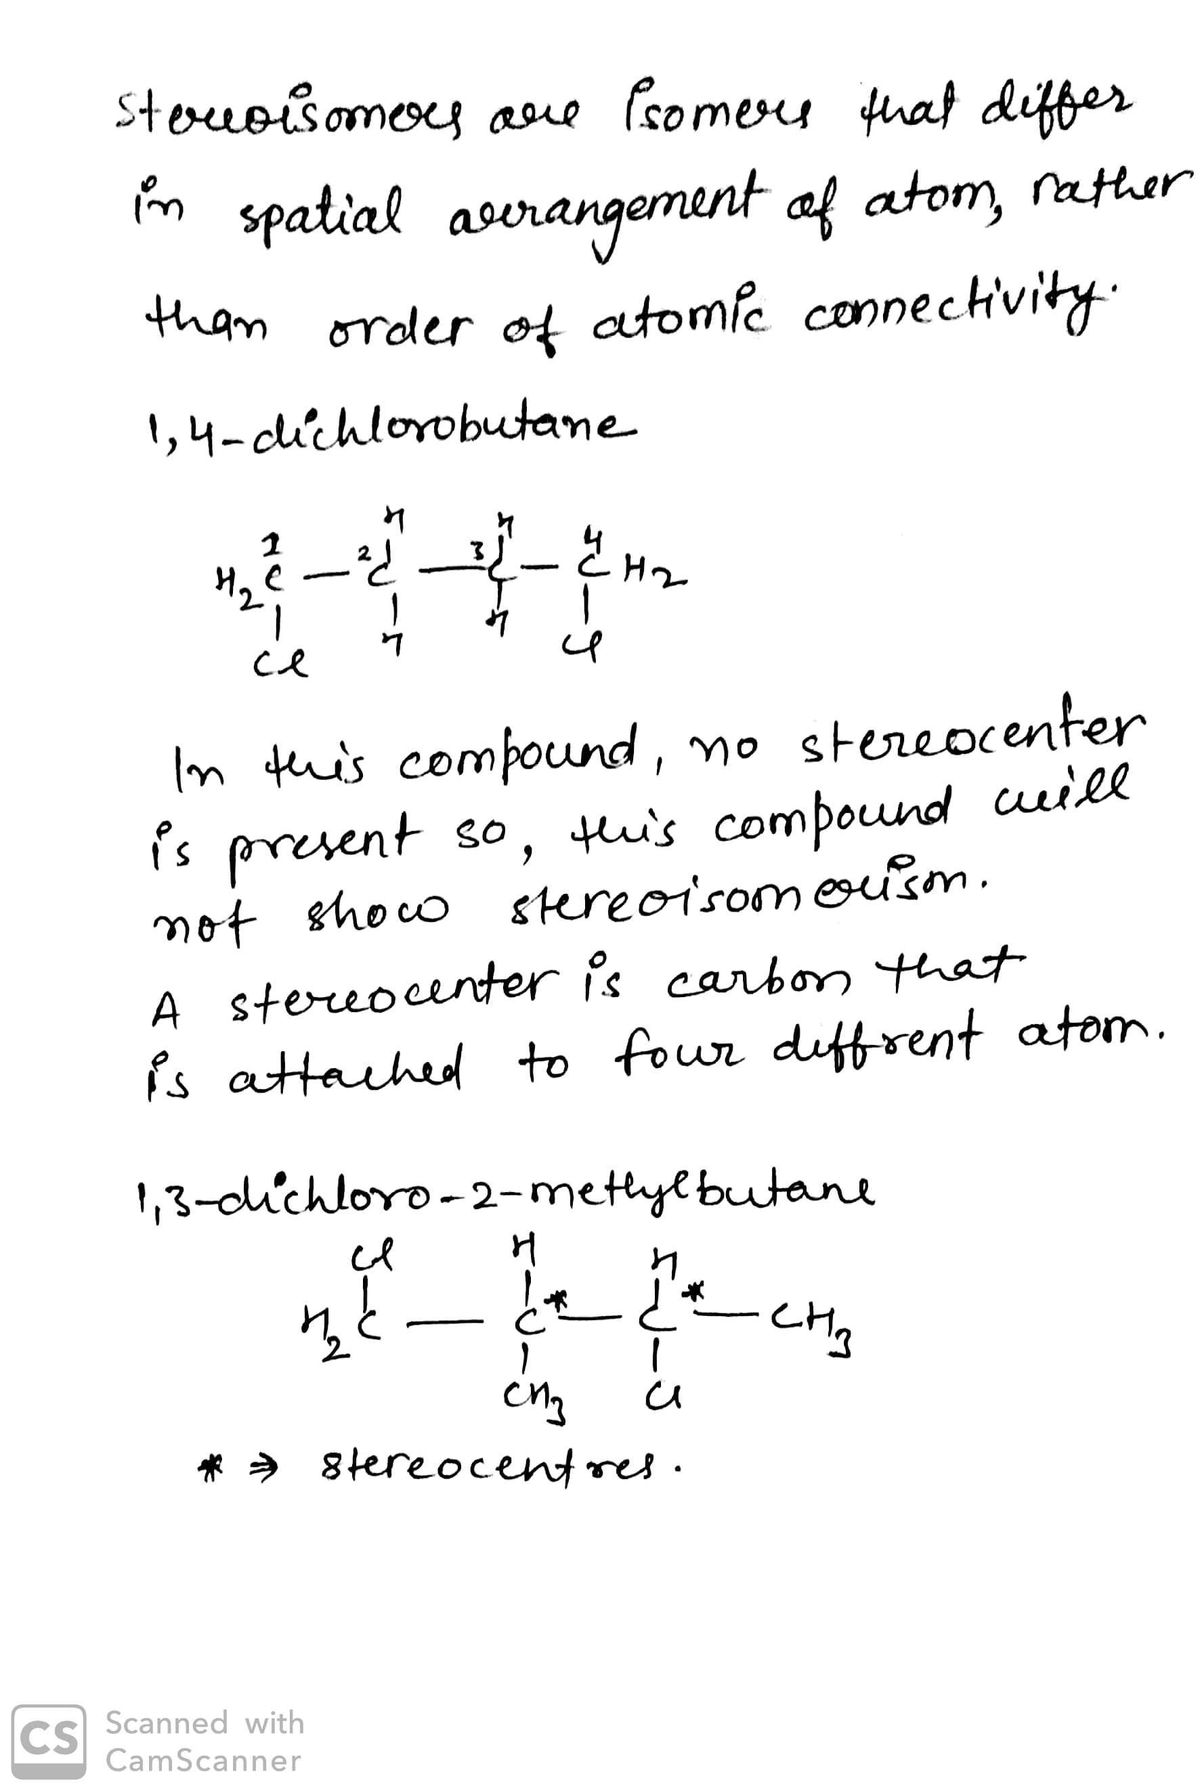 Stereoisomers are isomers that differ
in spatial arrangement of atom, rather
than order of atomic connectivity.
1,4-dichlorobutane
H H
1 2 3 4
H2C — C — C — CH2
Cl H H Cl
In this compound, no stereocenter
is present so, this compound will
not show stereoisomerism.
A stereocenter is carbon that
is attached to four diffrent atom.
1,3-dichloro-2-methylbutane
Cl H H
H2C — C* — C* — CH3
CH3 Cl
* ⇒ stereocentres.
CS Scanned with
CamScanner